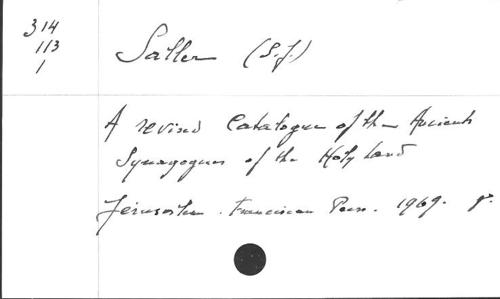 314
113
1
Saller (S.J.)
A revised Catalogue of the Ancient
Synagogues of the Holy Land
Jerusalem. Franciscan Press. 1969.